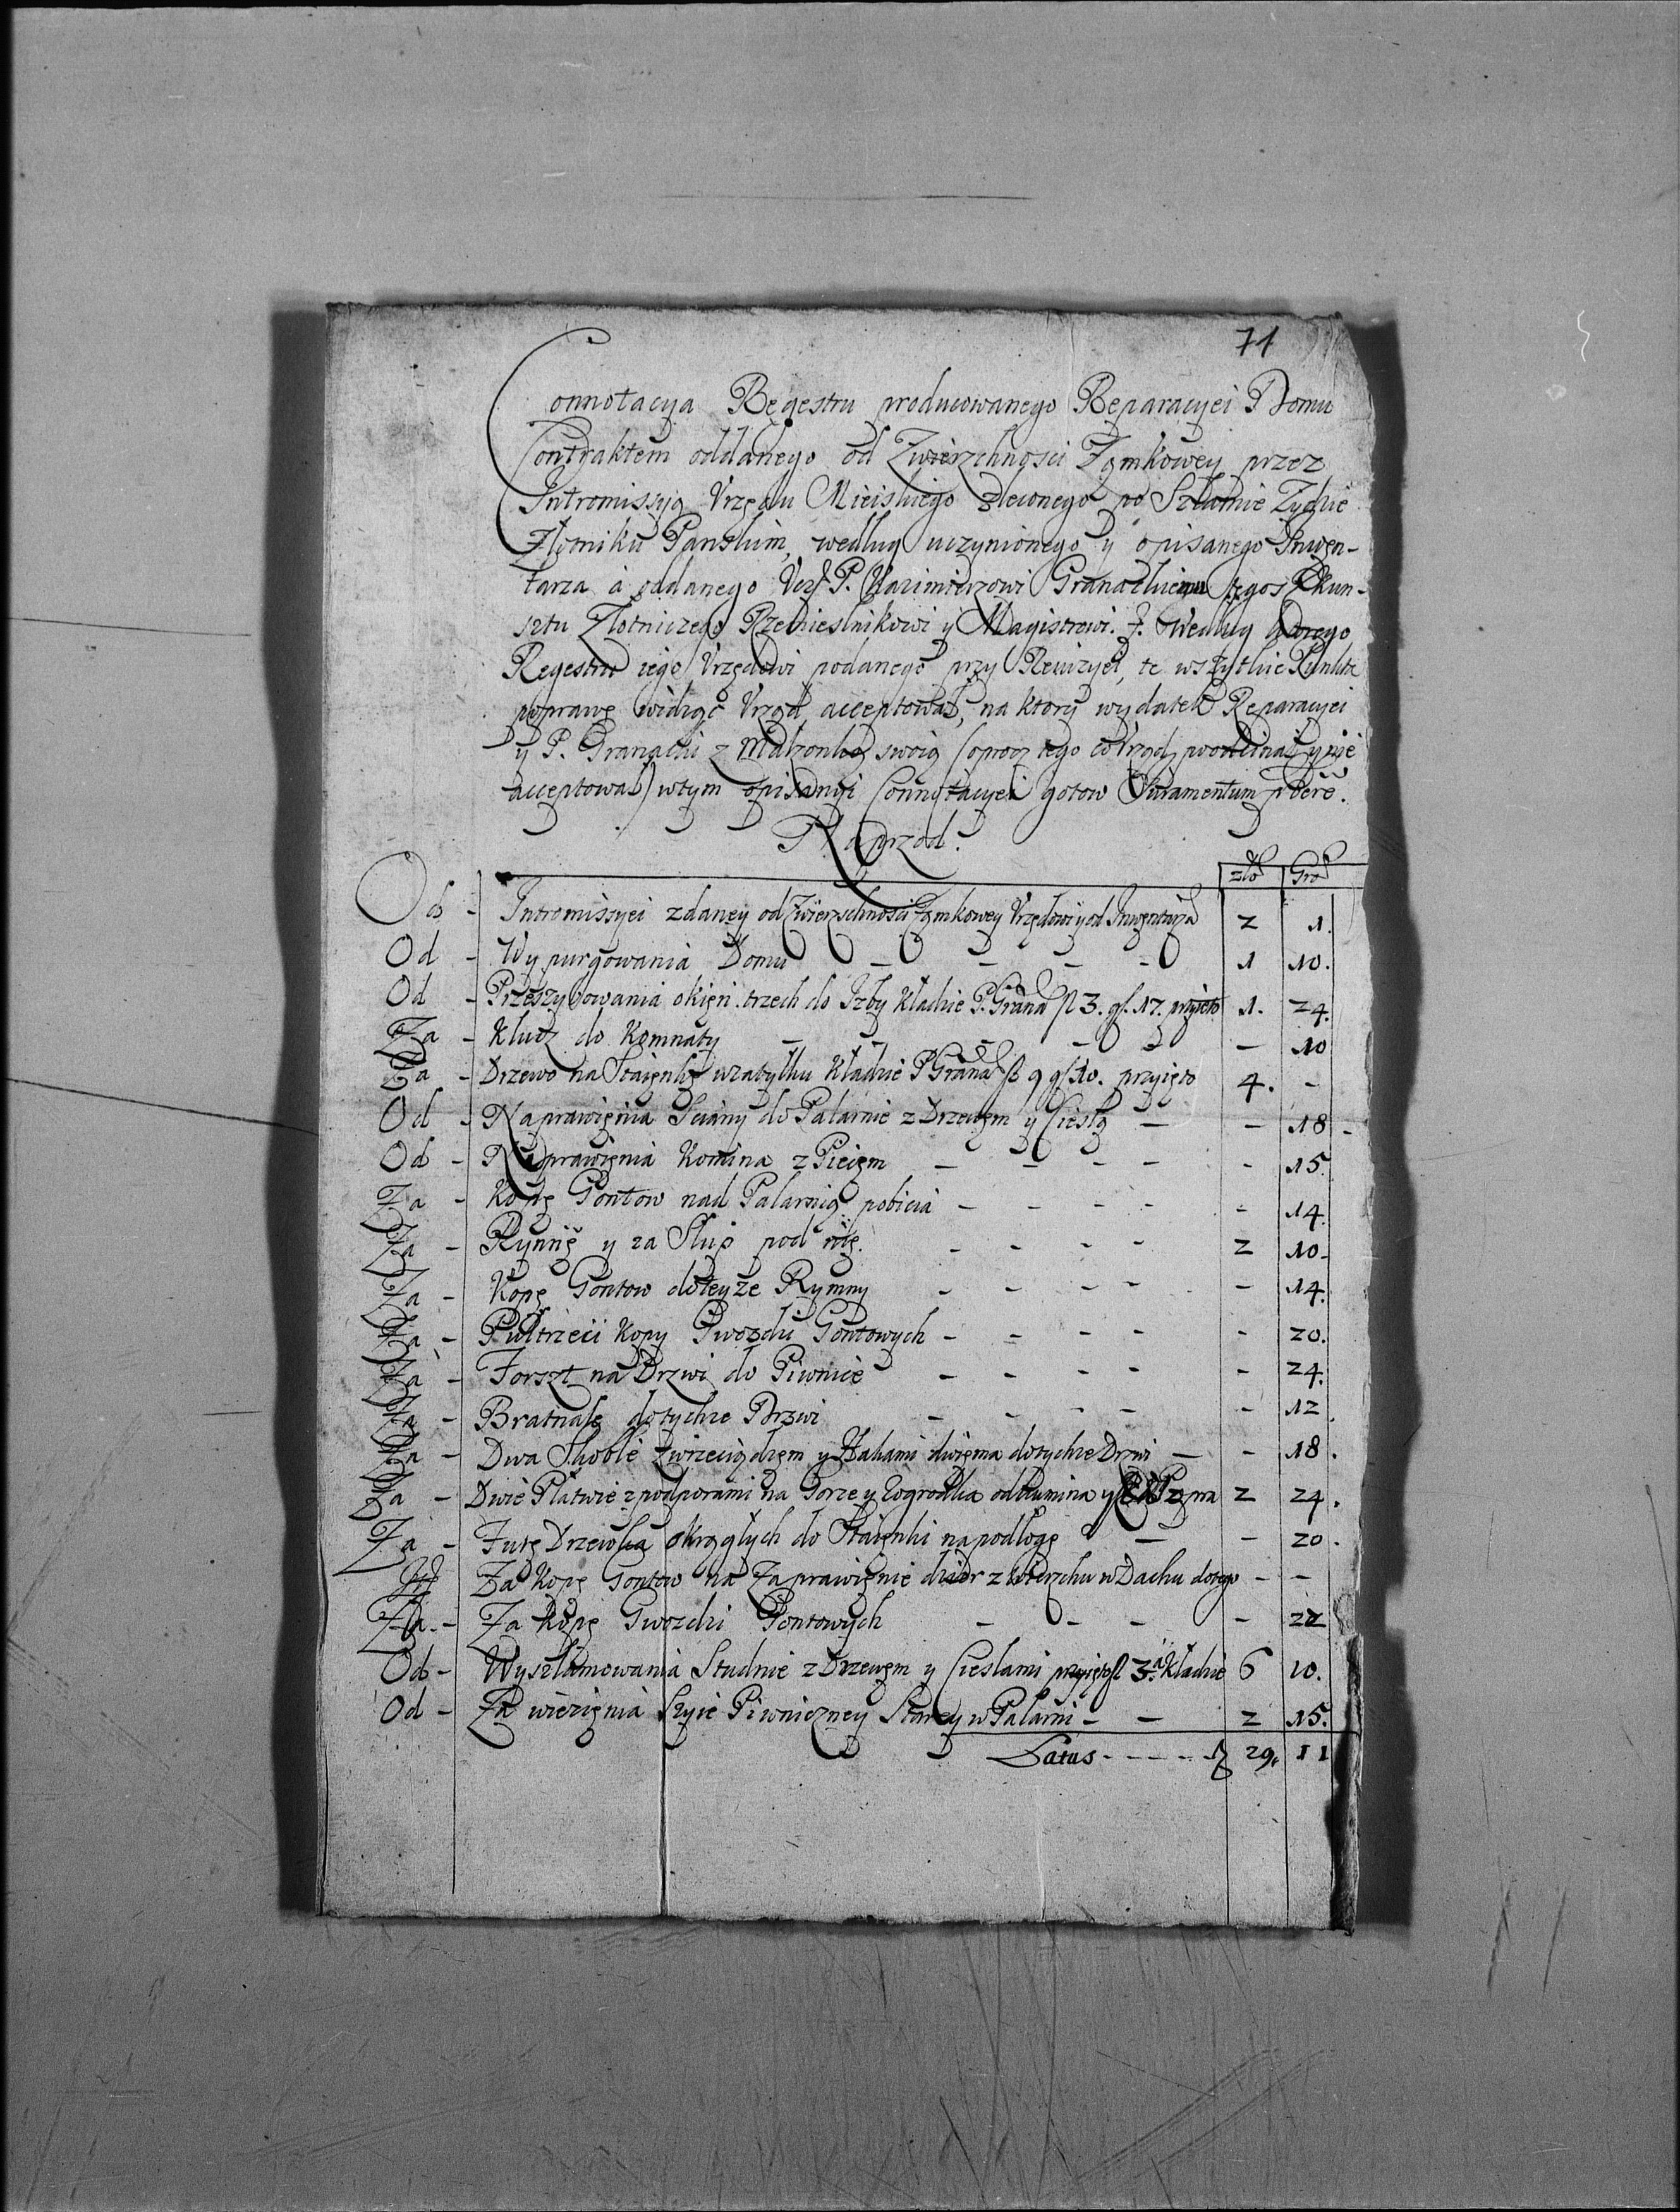 71
Connotacya Regestru producowanego Reparacyei Domu
Contraktem oddanego od Zwierzchnosci Zamkowey przez
Intromissyą Vrzędu Mieiskiego zleconego po Szlomie Zydzie
Złotniku Panskim, według uczynionego y opisanego Inwen-
tarza á oddanego P. Kazimierzowi Granackiemu tegosz Kun-
sztu Złotniczego Rzemieslnikowi y Magistrowi. Według ktorego
Regestru iego Vrzędowi podanego przy Rewizyei, te wszytkie Punkta
poprawę widząc Vrząd acceptował, na ktory wydatek Reparacyei
y P. Granacki z Małzonką swoią (oprocz tego co Vrząd y nie
acceptował) wtym opisanyi Connotacyei gotow Iuramentum
Naprzod.
zło Gro
Od - Intromissyei zdaney od Zwierzchnosci Zamkowey Vrzędowi y od Inwentarza 2 1.
Od - Wypurgowania Domu - - - - 1 10.
Od - Przeszybowania okien trzech do Izby kładzie P. Grana fl 3. gr. 17. przyięto 1. 24.
Za - Klucz do Komnaty - - - - - 10
Za - Drzewo na Staienkę wzatyłku kładzie P Grana fl 9 gr 10. przyięto 4. -
Od - Naprawienia Sciany do Palarnie z Drzewem y Cieslą - - 18 -
Od - Naprawienia Komina z Piecem - - - - - 15.
Za - Kopę Gontow nad Palarnią pobicia - - - - - 14.
Za - Rynnę y za Słup pod nię. - - - - 2 10-
Za - Kopę Gontow doteyze Rynny - - - - - 14.
Za - Pułtrzeci Kopy Gwozdzi Gontowych - - - - - 20.
Za - Forszt na Drzwi do Piwnice - - - - - 24.
Za - Bratnale dotychze Drzwi - - - - - 12.
Za - Dwa Skoble zwrzeciądzem y Hakami dwiema dotychze Drzwi - - 18.
Za - Dwie Płatwie z podporami na Gorze y Zogrodka odkumina y 2 24.
Za - Furę Drzewka okrągłych do Staienki na podłogę - - 20.
Za Kopę Gontow na Zaprawienie dziur z wierzchu w Dachu dotego - -
Za - Za Kopę Gwozdzi Gontowych - - - - 22
Od - Wyszlamowania Studnie z Drzewem y Cieslami kładzie 6 10.
Od - Zawierzenia Szyie Piwniczney Starey w Palarni - - 2 15.
Latus - - - - 29. 11